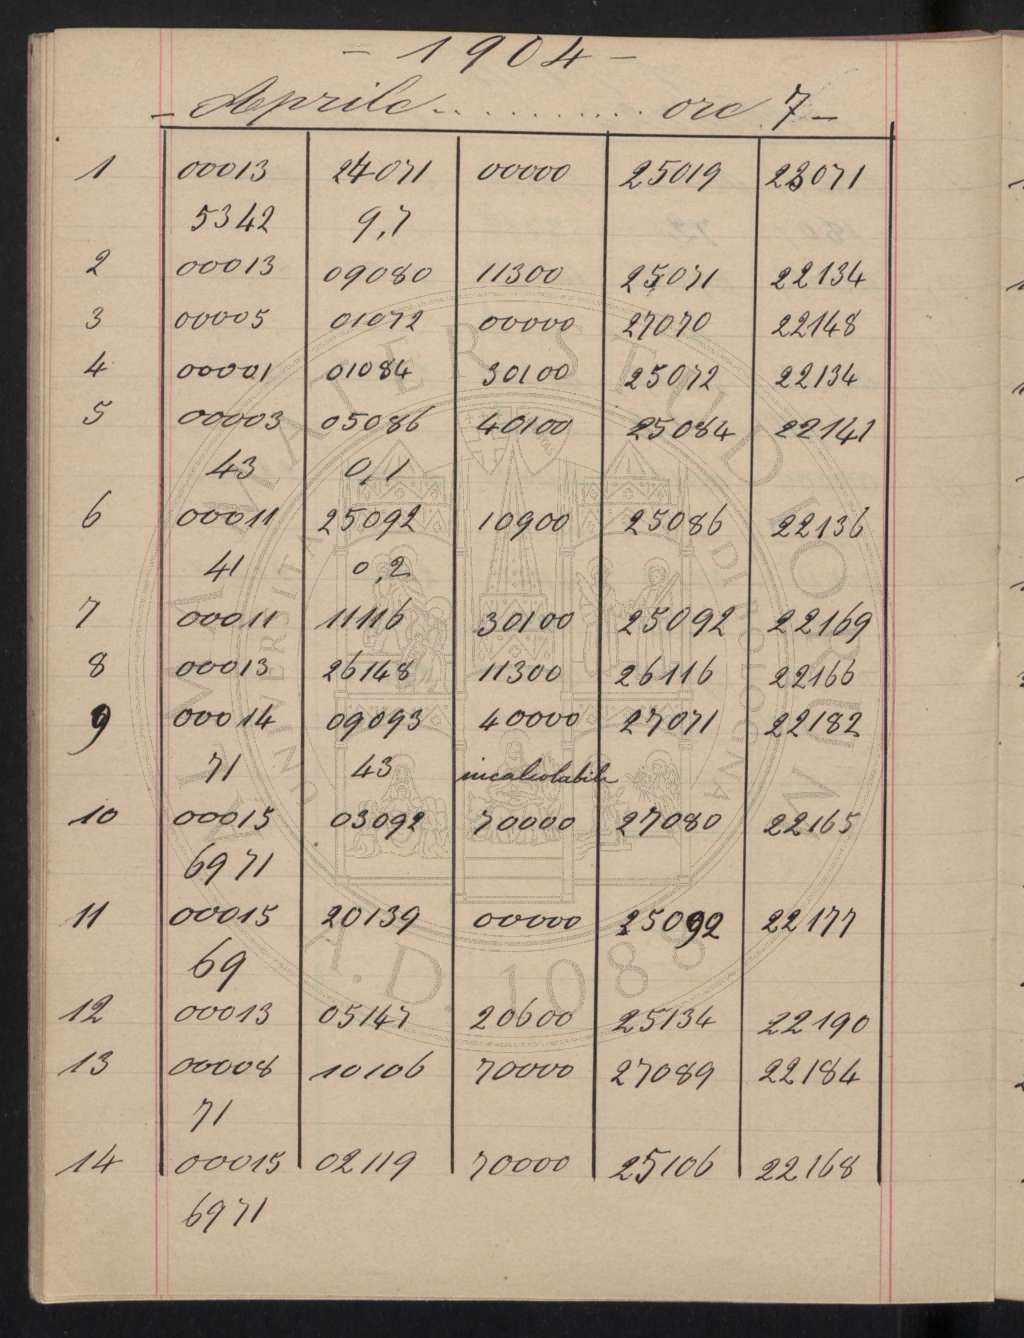 - 1904 -
- Aprile ............ ore 7 -
1 00013 24071 00000 25019 23071
5342 9,7
2 00013 09080 11300 25071 22134
3 00005 01072 00000 27070 22148
4 00001 01084 30100 25072 22134
5 00003 05086 40100 25084 22141
43 0,1
6 00011 25092 10900 25086 22136
41 0,2
7 00011 11116 30100 25092 22169
8 00013 26148 11300 26116 22166
9 00014 09093 40000 27071 22182
71 43 incalcolabile
10 00015 03092 70000 27080 22165
6971
11 00015 20139 00000 25092 22177
69
12 00013 05147 20600 25134 22190
13 00008 10106 70000 27089 22184
71
14 00015 02119 70000 25106 22168
6971
ALMA MATER STUDIORUM
UNIVERSITA DI BOLOGNA
A.D. 1088